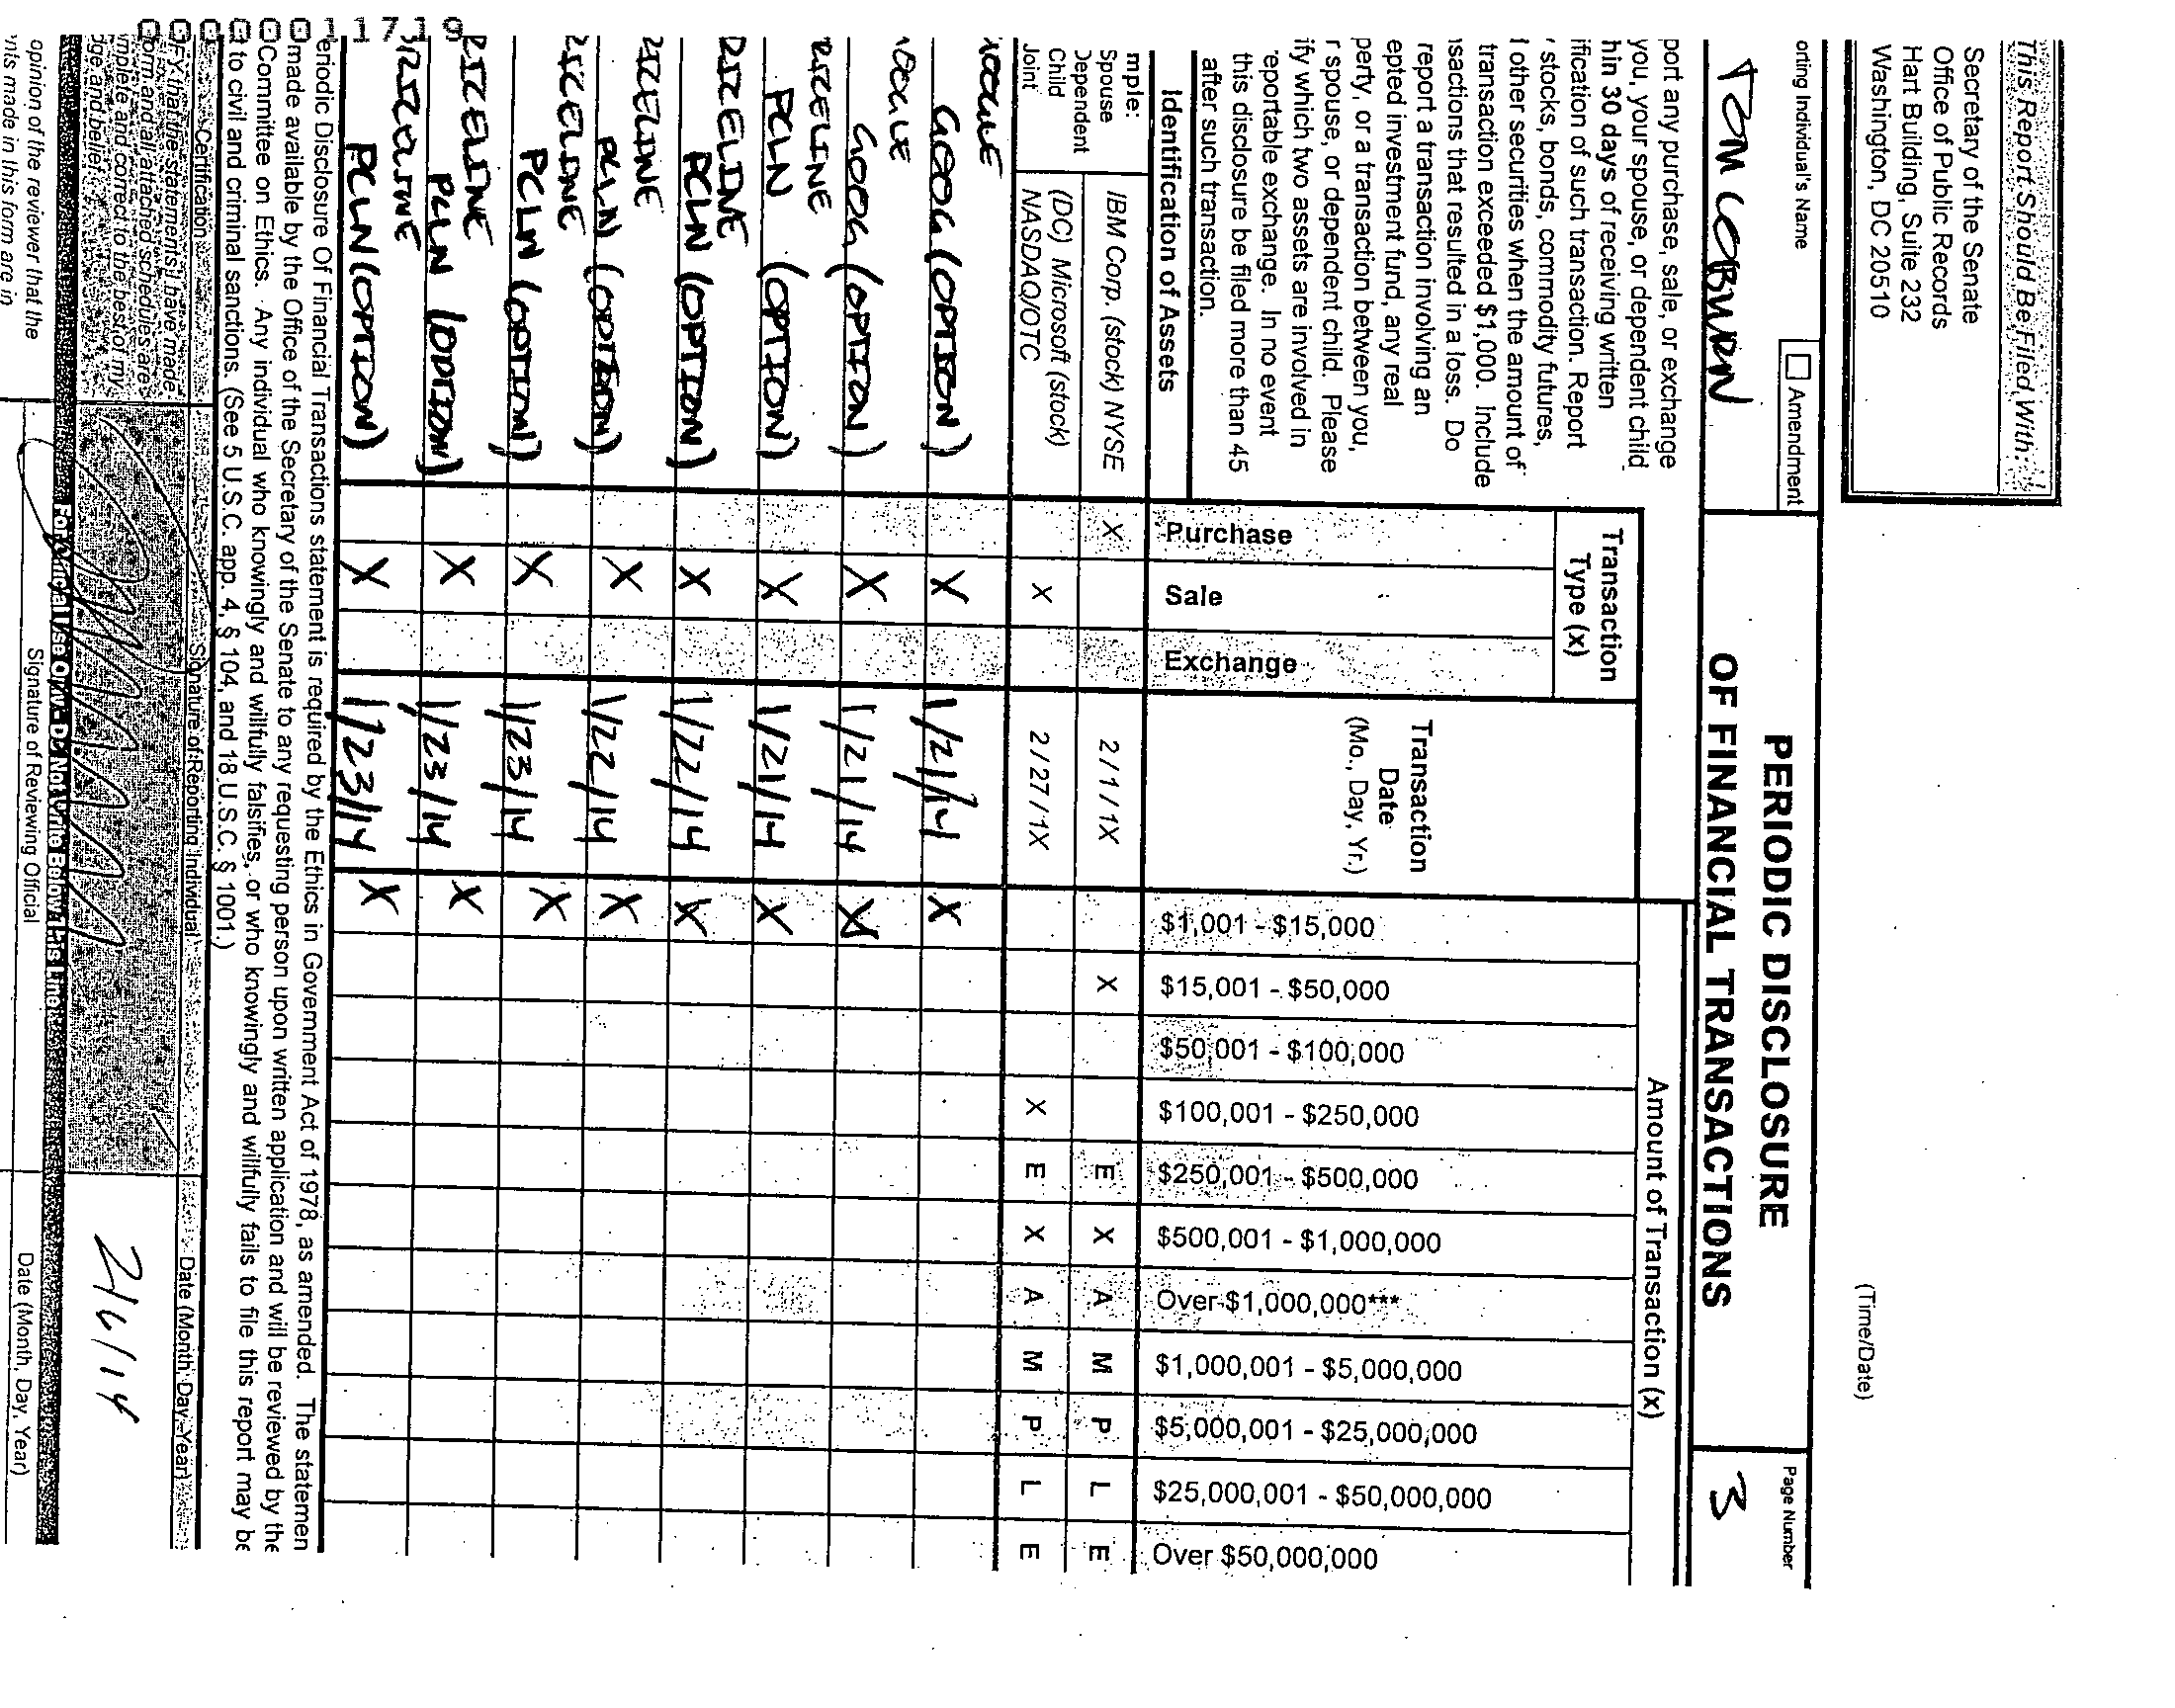 This Report Should Be Filed With:
Secretary of the Senate
Office of Public Records
Hart Building, Suite 232
Washington, DC 20510
(Time/Date)
orting Individual's Name
Amendment
TOM COBURN
PERIODIC DISCLOSURE
OF FINANCIAL TRANSACTIONS
Page Number
3
port any purchase, sale, or exchange
you, your spouse, or dependent child
hin 30 days of receiving written
ification of such transaction. Report
stocks, bonds, commodity futures,
other securities when the amount of
transaction exceeded $1,000. Include
nsactions that resulted in a loss. Do
report a transaction involving an
epted investment fund, any real
perty, or a transaction between you,
r spouse, or dependent child. Please
ify which two assets are involved in
reportable exchange. In no event
this disclosure be filed more than 45
after such transaction.
Identification of Assets
Transaction
Type (x)
Purchase
Sale
Exchange
Transaction
Date
(Mo., Day, Yr.)
Amount of Transaction (x)
$1,001 - $15,000
$15,001 - $50,000
$50,001 - $100,000
$100,001 - $250,000
$250,001 - $500,000
$500,001 - $1,000,000
Over $1,000,000***
$1,000,001 - $5,000,000
$5,000,001 - $25,000,000
$25,000,001 - $50,000,000
Over $50,000,000
mple:
Spouse
Dependent
Child
Joint
IBM Corp. (stock) NYSE X 2/1/1X X E X A M P L E
(DC) Microsoft (stock)
NASDAQ/OTC X 2/27/1X X E X A M P L E
OOGLE
GOOG (OPTION) X 1/21/14 X
OOGLE
GOOG (OPTION) X 1/21/14 X
RICELINE
PCLN (OPTION) X 1/21/14 X
RICELINE
PCLN (OPTION) X 1/22/14 X
RICELINE
PCLN (OPTION) X 1/22/14 X
RICELINE
PCLN (OPTION) X 1/23/14 X
RICELINE
PCLN (OPTION) X 1/23/14 X
RICELINE
PCLN (OPTION) X 1/23/14 X
eriodic Disclosure Of Financial Transactions statement is required by the Ethics in Government Act of 1978, as amended. The statemen
made available by the Office of the Secretary of the Senate to any requesting person upon written application and will be reviewed by the
Committee on Ethics. Any individual who knowingly and willfully falsifies, or who knowingly and willfully fails to file this report may be
t to civil and criminal sanctions. (See 5 U.S.C. app. 4, § 104, and 18 U.S.C. § 1001.)
Certification
Signature of Reporting Individual
Date (Month, Day, Year)
FY that the statements I have made
form and all attached schedules are
mplete and correct to the best of my
dge and belief.
2/6/14
For Official Use Only - Do Not Write Below This Line
opinion of the reviewer that the
nts made in this form are in
Signature of Reviewing Official
Date (Month, Day, Year)
000000011719